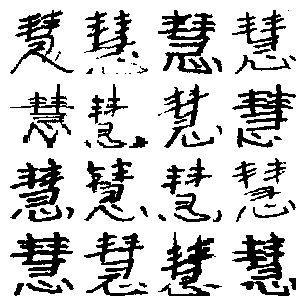 慧慧慧慧
慧慧慧慧
慧慧慧慧
慧慧慧慧